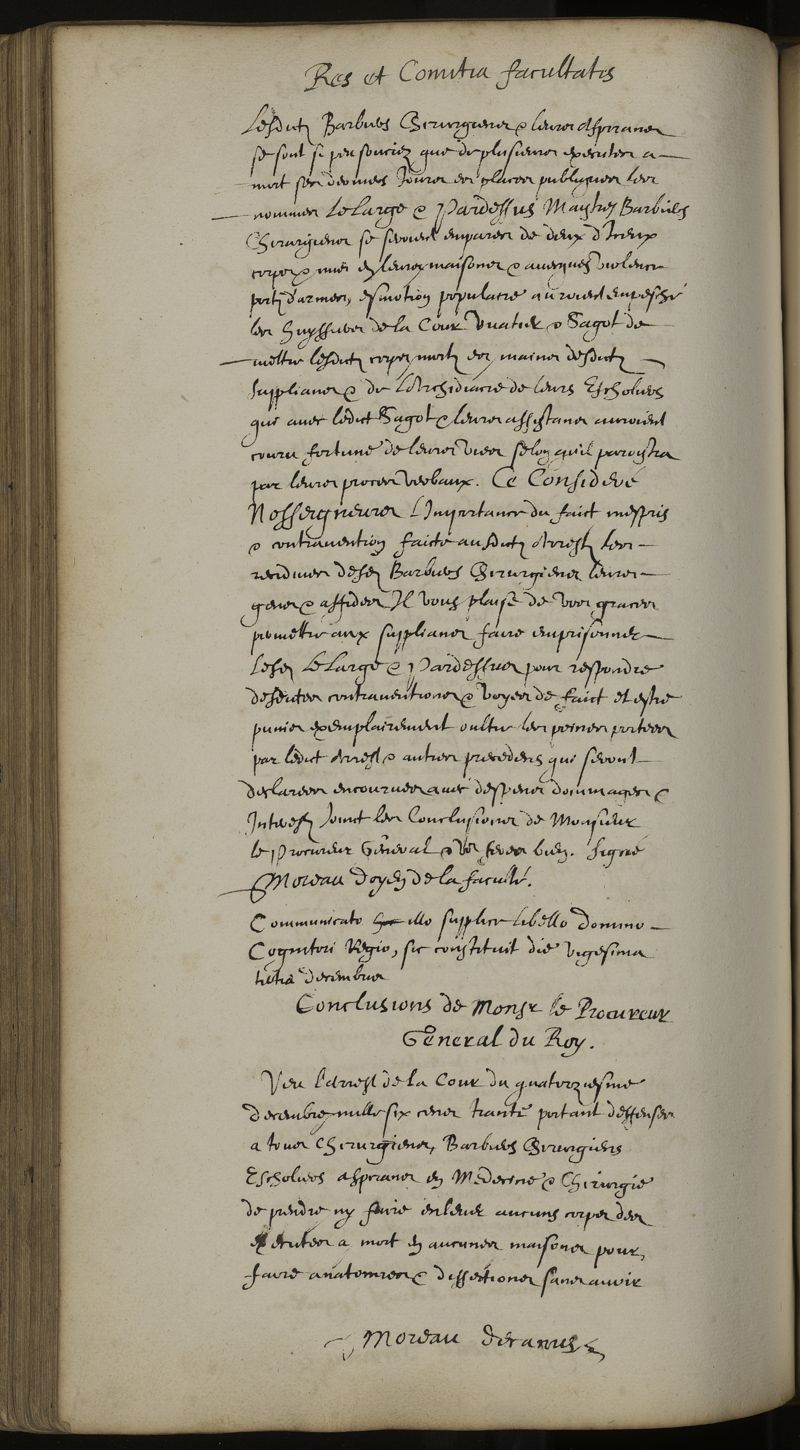 Res et Comitia facultatis
Lesdicts Barbiers Chirurgiens & leurs Aspirans
se sont si peu souciez que de plusieurs executez a
mort ses derniers Jours es places publiques les
nommez Le Large & Pardessus Maistres Barbiers
Chirurgiens se seroient emparez de deux d'Iceux
corps & mis en leurs maisons & avecques violence
portz d'armes, esmotion populaire auroient empesché
les Huyssiers de la Cour Vuatier & Sagot de
mettre lesdicts corps morts es mains desdicts
supplians & de l'Archidiacre de leurs Escholiers
qui avec ledict Sagot & leurs assistans auroient
couru fortune de leurs vies selon qu'il paroistra
par leurs procez verbaux. Ce Consideré
Nosseigneurs l'Importance du faict mespris
& contravention faicte ausdicts Arrests les
recidives desdicts Barbiers Chirurgiens leurs
gens & affidez Il vous plaise de vos graces
permettre aux supplians faire emprisonner
lesdicts Le Large & Pardessus pour respondre
desdictes contraventions & voyes de faict et estre
punis exemplairement oultre les peines portees
par ledict Arrest & autres precedens qui seront
declarees encourues avec despens dommages &
Interests Joinct les Conclusions de Monsieur
le Procureur General & vous ferez bien. Signé
Moreau Doyen de la faculté.
Communicato illo supplice libello domino
Cognitori Regio, sic constituit die vigesima
tertia decembris
Conclusions de Monsr le Procureur
General du Roy.
Veu l'Arrest de la Cour du quatorziesme
decembre mille six cens trante portant deffenses
a tous Chirurgiens, Barbiers Chirurgiens
Escholiers aspirans en Medecine & Chirurgie
de prendre ny faire enlever aucuns corps des
executez a mort en aucunes maisons pour
faire anatomies & dissections sans avoir
Moreau decanus